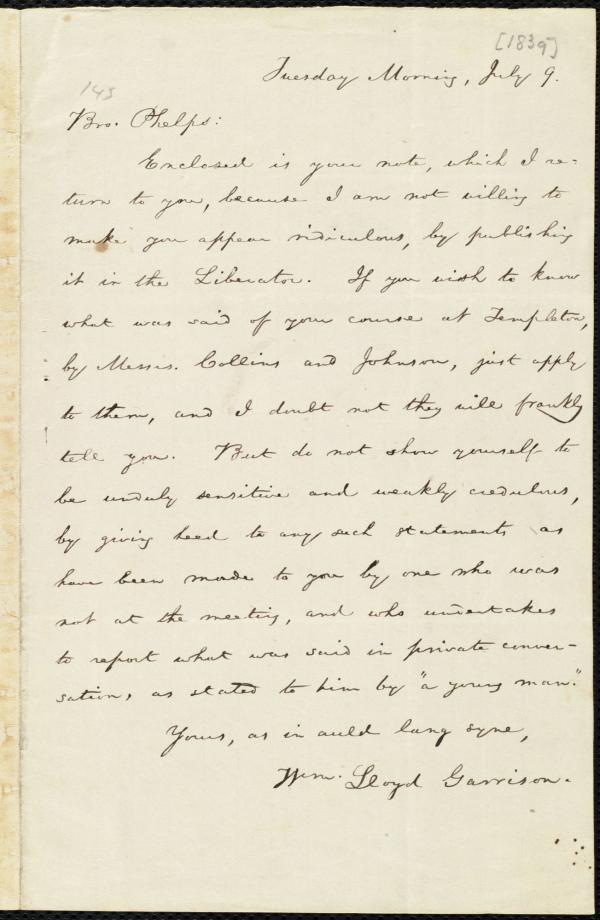 [1839]
Tuesday Morning, July 9.
143
Bro. Phelps:
Enclosed is your note, which I re-
turn to you, because I am not willing to
make you appear ridiculous, by publishing
it in the Liberator. If you wish to know
what was said of your course at Templeton,
by Messrs. Collins and Johnson, just apply
to them, and I doubt not they will frankly
tell you. But do not show yourself to
be unduly sensitive and weakly credulous,
by giving heed to any such statements as
have been made to you by one who was
not at the meeting, and who undertakes
to report what was said in private conver-
sation, as stated to him by "a young man."
Yours, as in auld lang syne,
Wm. Lloyd Garrison.